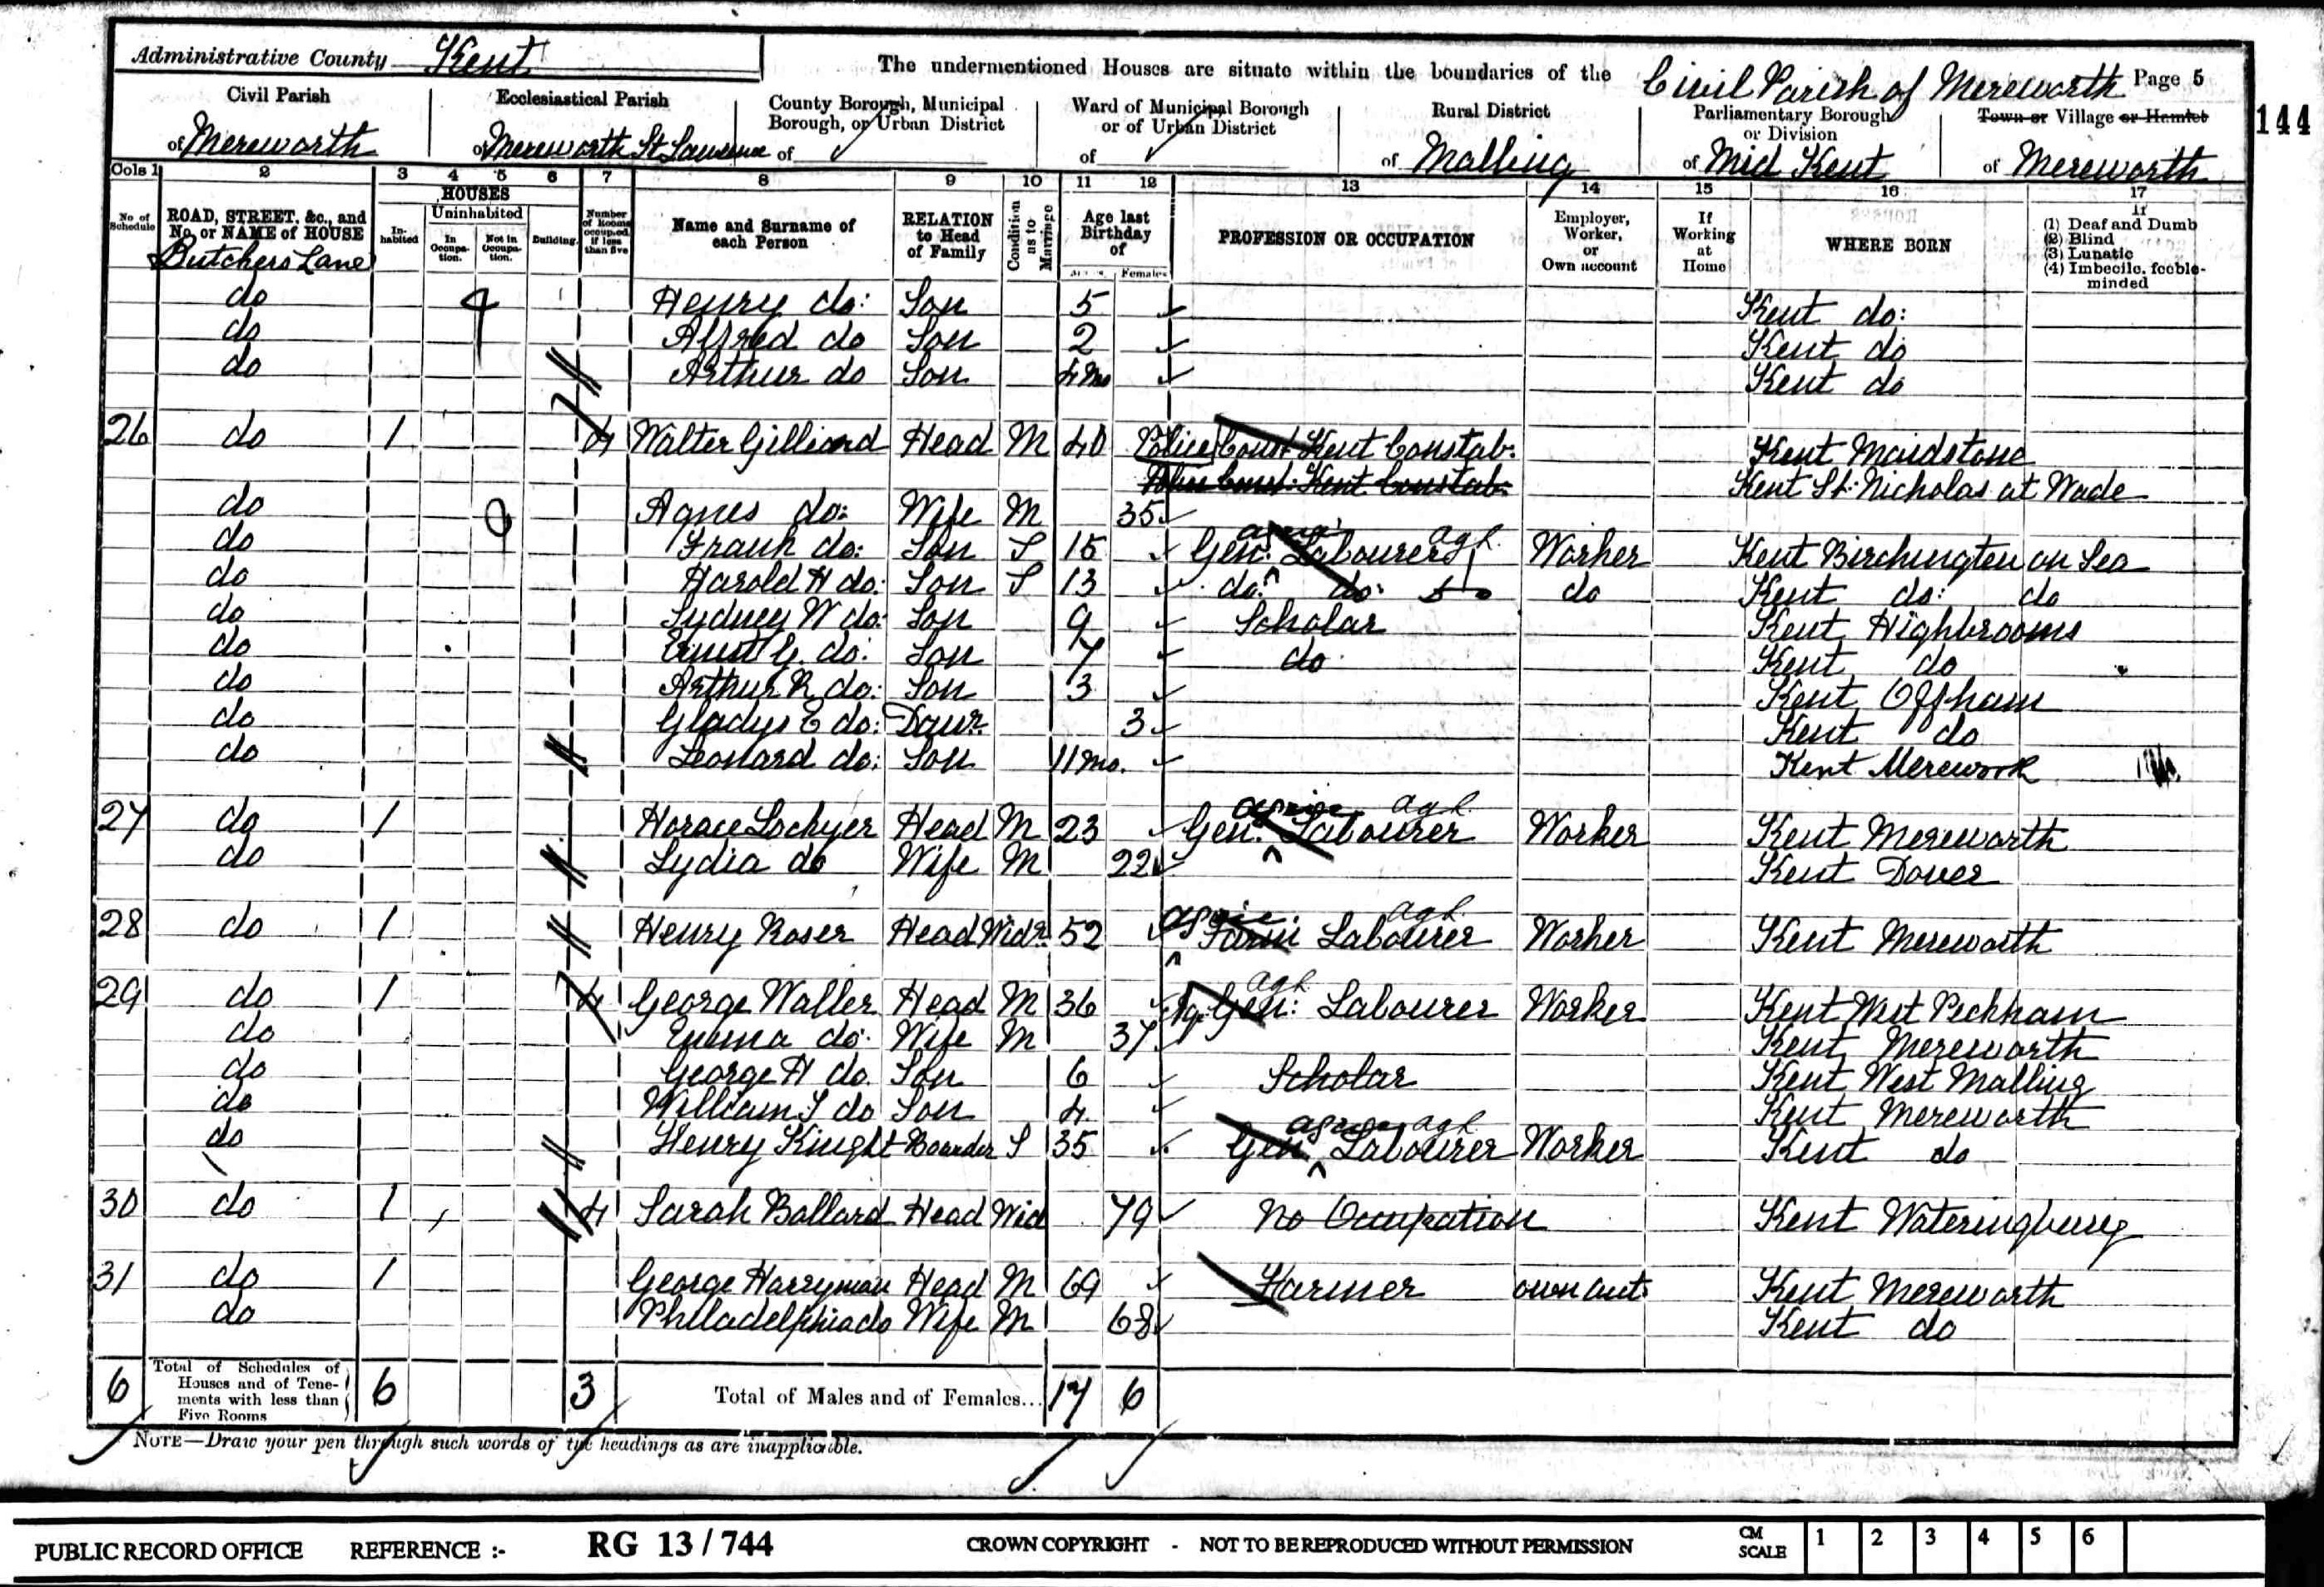 Administrative County Kent
The undermentioned Houses are situate within the boundaries of the Civil Parish of Mereworth Page 5
144
Civil Parish of Mereworth
Ecclesiastical Parish of Mereworth St Lawrence
County Borough, Municipal Borough, or Urban District of
Ward of Municipal Borough or of Urban District of
Rural District of Malling
Parliamentary Borough or Division of Mid Kent
Town or Village or Hamlet of Mereworth
Cols 1 2 3 4 5 6 7 8 9 10 11 12 13 14 15 16 17
No of Schedule
ROAD, STREET, &c., and No. or NAME of HOUSE
HOUSES
Inhabited
Uninhabited
In Occupation.
Not in Occupation.
Building.
Number of Rooms occupied if less than five
Name and Surname of each Person
RELATION to Head of Family
Condition as to Marriage
Age last Birthday of
Females
PROFESSION OR OCCUPATION
Employer, Worker, or Own account
If Working at Home
WHERE BORN
If
(1) Deaf and Dumb
(2) Blind
(3) Lunatic
(4) Imbecile, feeble-minded
Butchers Lane
do Henry do: Son 5 Kent do:
do Alfred do Son 2 Kent do
do Arthur do Son 4 mo Kent do
26 do 1 4 Walter Gilliard Head M 40 Police Const Kent Constab: Kent Maidstone
Police Const: Kent Constab:
do Agnes do: Wife M 35 Kent St. Nicholas at Wade
do Frank do: Son S 15 Gen: Labourer agl. Worker Kent Birchington on Sea
do Harold H do: Son S 13 do: do: do Kent do: do
do Sydney W do: Son 9 Scholar Kent Highbrooms
do Ernest G. do: Son 7 do Kent do
do Arthur R do: Son 3 Kent Offham
do Gladys E do: Daur. 3 Kent do
do Leonard do: Son 11 mo. Kent Merework
27 do 1 Horace Lockyer Head M 23 Gen: Labourer agl. Worker Kent Mereworth
do Lydia do Wife M 22 Kent Dover
28 do 1 Henry Roser Head Widr. 52 Farm Labourer agl. Worker Kent Mereworth
29 do 1 4 George Waller Head M 36 Gen: Labourer agl. Worker Kent West Peckham
do Emma do: Wife M 37 Kent Mereworth
do George H do. Son 6 Scholar Kent West Malling
do William do Son 4 Kent Mereworth
do Henry Knight Boarder S 35 Gen Labourer agl Worker Kent do
30 do 1 4 Sarah Ballard Head Wid 79 No Occupation Kent Wateringbury
31 do 1 George Harryman Head M 69 Farmer own acct: Kent Mereworth
do Philadelphia do Wife M 68 Kent do
6 Total of Schedules of Houses and of Tenements with less than Five Rooms 6 3 Total of Males and of Females... 17 6
NOTE—Draw your pen through such words of the headings as are inapplicable.
PUBLIC RECORD OFFICE REFERENCE :- RG 13 / 744 CROWN COPYRIGHT - NOT TO BE REPRODUCED WITHOUT PERMISSION CM SCALE 1 2 3 4 5 6